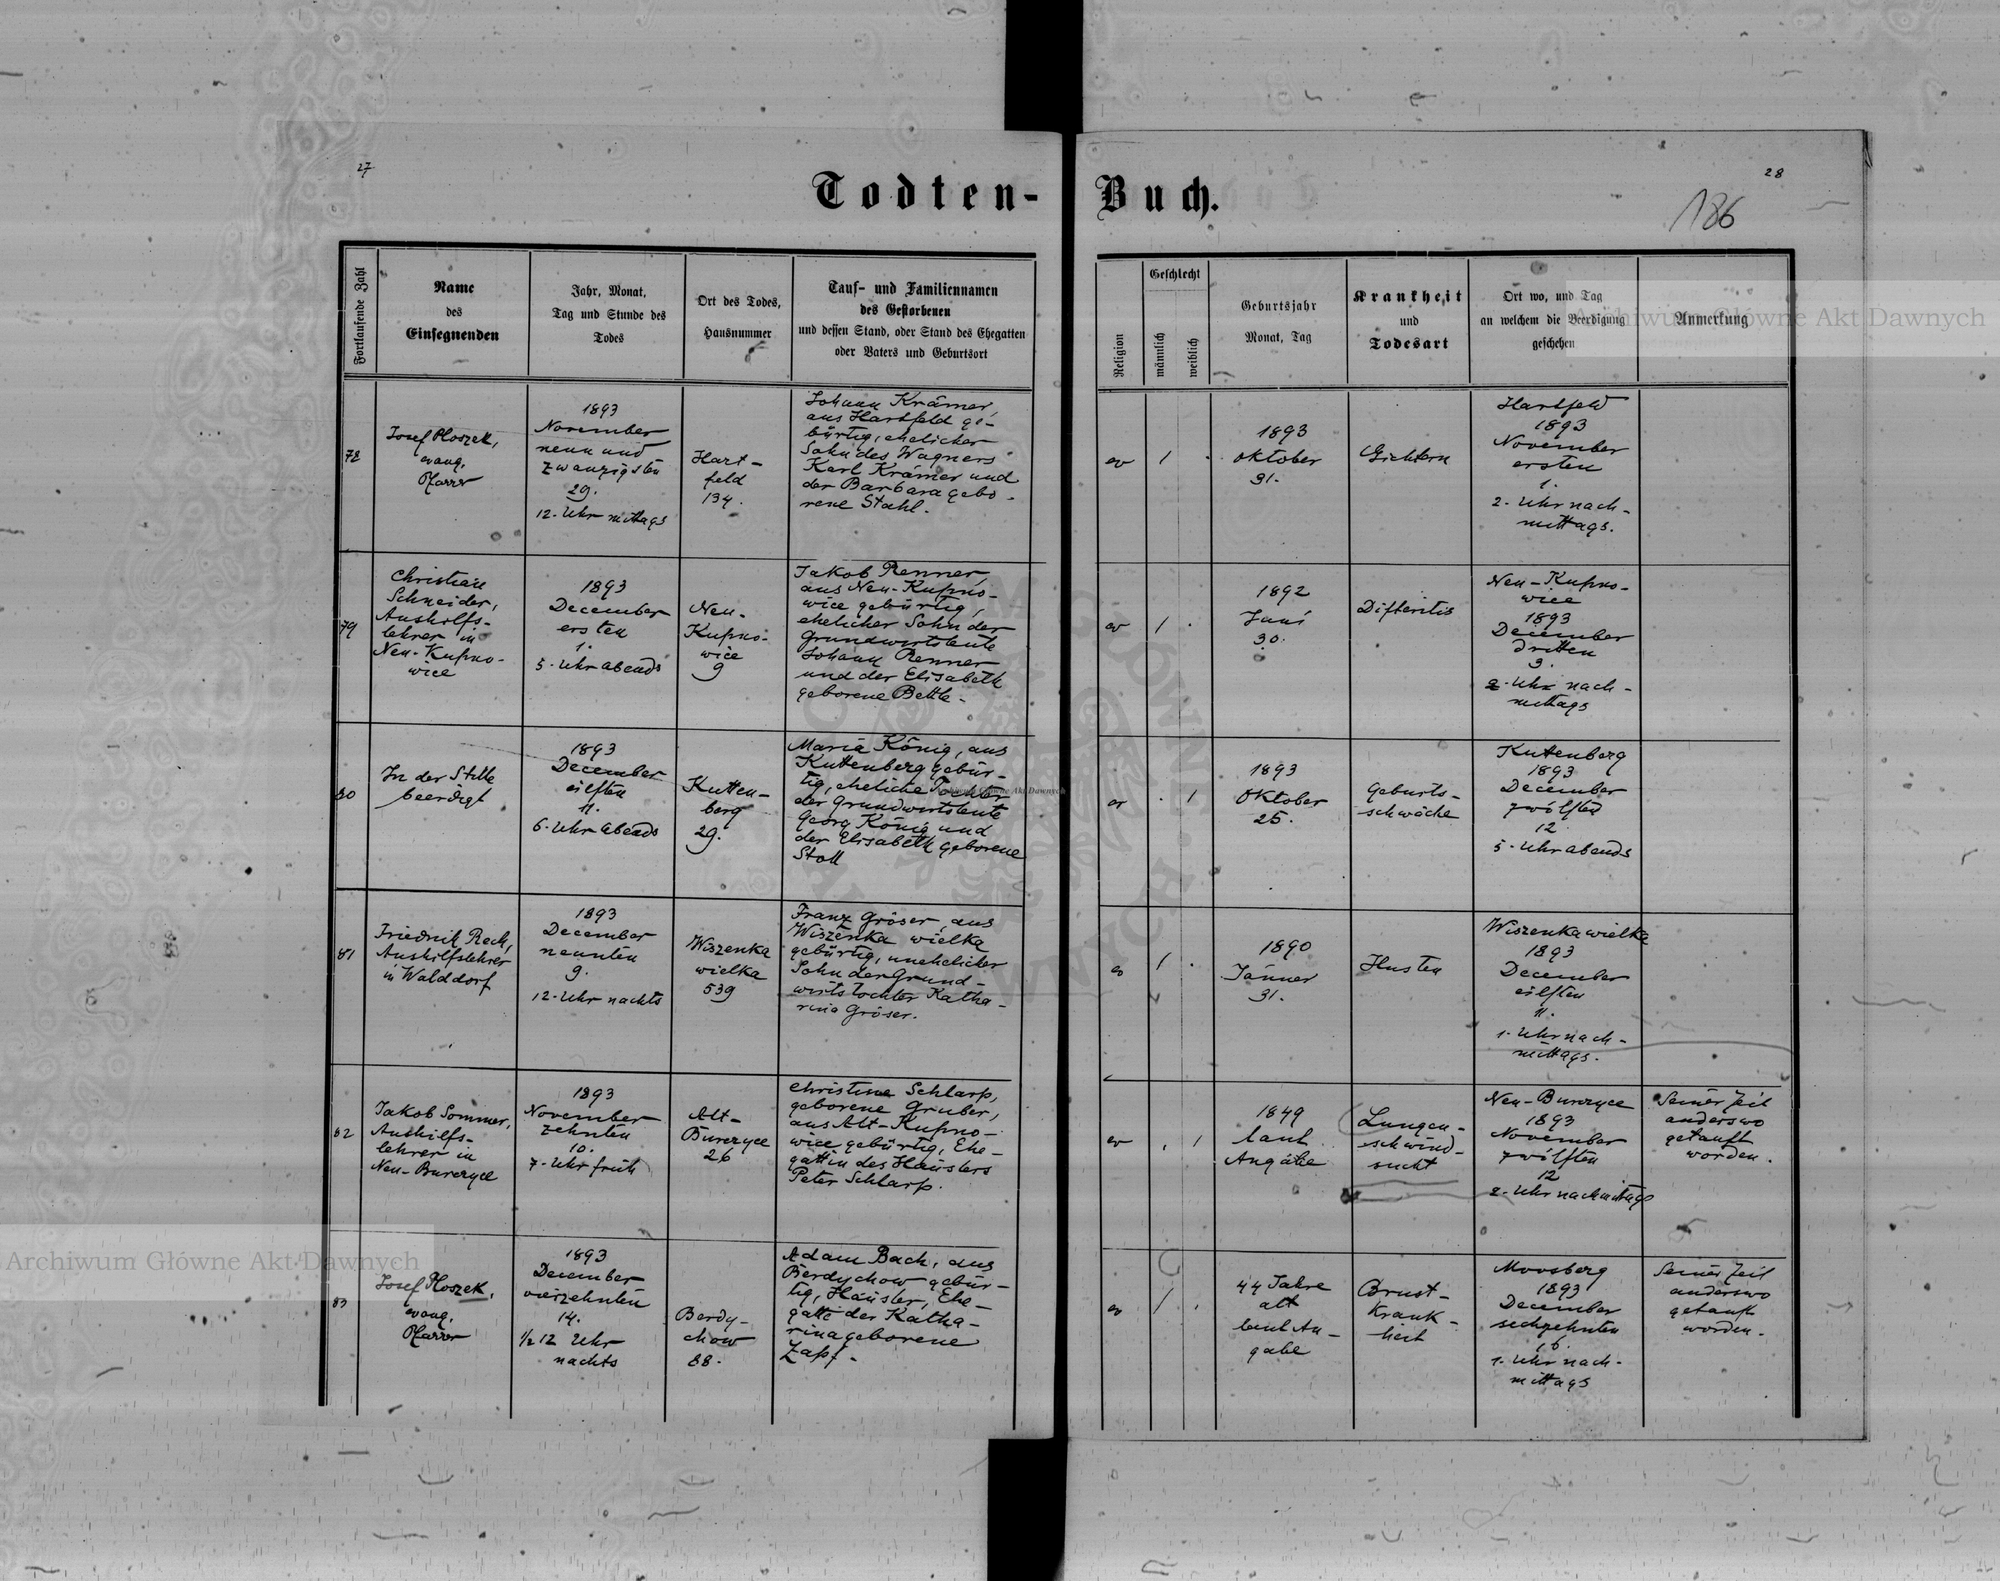 27
28
Todten-Buch.
186
Fortlaufende Zahl
Name
des
Einsegnenden
Jahr, Monat,
Tag und Stunde des
Todes
Ort des Todes,
Hausnummer
Tauf- und Familiennamen
des Gestorbenen
und dessen Stand, oder Stand des Ehegatten
oder Vaters und Geburtsort
Religion
Geschlecht
männlich
weiblich
Geburtsjahr
Monat, Tag
Krankheit
und
Todesart
Ort wo, und Tag
an welchem die Beerdigung
geschehen
Anmerkung
78
Josef Ploszek,
evang.
Pfarrer
1893
November
neun und
zwanzigsten
29.
12. Uhr mittags
Hart-
feld
134.
Johann Krämer,
aus Hartfeld ge-
bürtig, ehelicher
Sohn des Wagners
Karl Krämer und
der Barbara gebo-
rene Stahl.
ev
1
1893
Oktober
31.
Gichtern
Hartfeld
1893
November
ersten
1.
2. Uhr nach-
mittags.
79
Christian
Schneider,
Aushilfs-
lehrer in
Neu-Kupno-
wice
1893
December
ersten
1.
5. Uhr abends
Neu-
Kupno-
wice
9
Jakob Renner,
aus Neu-Kupno-
wice gebürtig,
ehelicher Sohn der
Grundwirtsleute
Johann Renner
und der Elisabeth
geborene
ev
1
1892
Juni
30.
Difteritis
Neu-Kupno-
wice
1893
December
dritten
3.
2. Uhr nach-
mittags
80
In der Stille
beerdigt
1893
December
eilften
11.
6. Uhr abends
Kutten-
berg
29.
Maria König, aus
Kuttenberg gebür-
tig, eheliche Tochter
der Grundwirtsleute
Georg König und
der Elisabeth geborene
Stoll
ev
1
1893
Oktober
25.
Geburts-
schwäche
Kuttenberg
1893
December
zwölften
12
5. Uhr abends
81
Friedrik Rech,
Aushilfslehrer
in Walddorf
1893
December
neunten
9.
12. Uhr nachts
Wiszenka
wielka
539
Franz Gröser, aus
Wiszenka wielka
gebürtig, unehelicher
Sohn der Grund-
wirtstochter Katha-
rina Gröser.
ev
1
1890
Jänner
31.
Husten
Wiszenka wielka
1893
December
eilften
11.
1. Uhr nach-
mittags.
82
Jakob Sommer,
Aushilfs-
lehrer in
Neu-Burczyce
1893
November
zehnten
10.
7. Uhr früh
Alt-
Burczyce
26
Christine Schlarp,
geborene Gruber,
aus Alt-Kupno-
wice gebürtig, Ehe-
gattin des Häuslers
Peter Schlarp.
ev
1
1849
laut
Angabe
Lungen-
schwind-
sucht
Neu-Burczyce
1893
November
zwölften
12
2. Uhr nachmittags
Seiner Zeit
anderswo
getauft
worden.
83
Josef Ploszek,
evang.
Pfarrer
1893
December
vierzehnten
14.
1/2 12 Uhr
nachts
Berdy-
chow
88.
Adam Bach, aus
Berdychow gebür-
tig, Häusler, Ehe-
gatte der Katha-
rina geborene
Zapf.
ev
1
44 Jahre
alt
laut An-
gabe
Brust-
krank-
heit
Moosberg
1893
December
sechzehnten
16.
1. Uhr nach-
mittags
Seiner Zeit
anderswo
getauft
worden.
Archiwum Główne Akt Dawnych
Archiwum Główne Akt Dawnych
Archiwum Główne Akt Dawnych